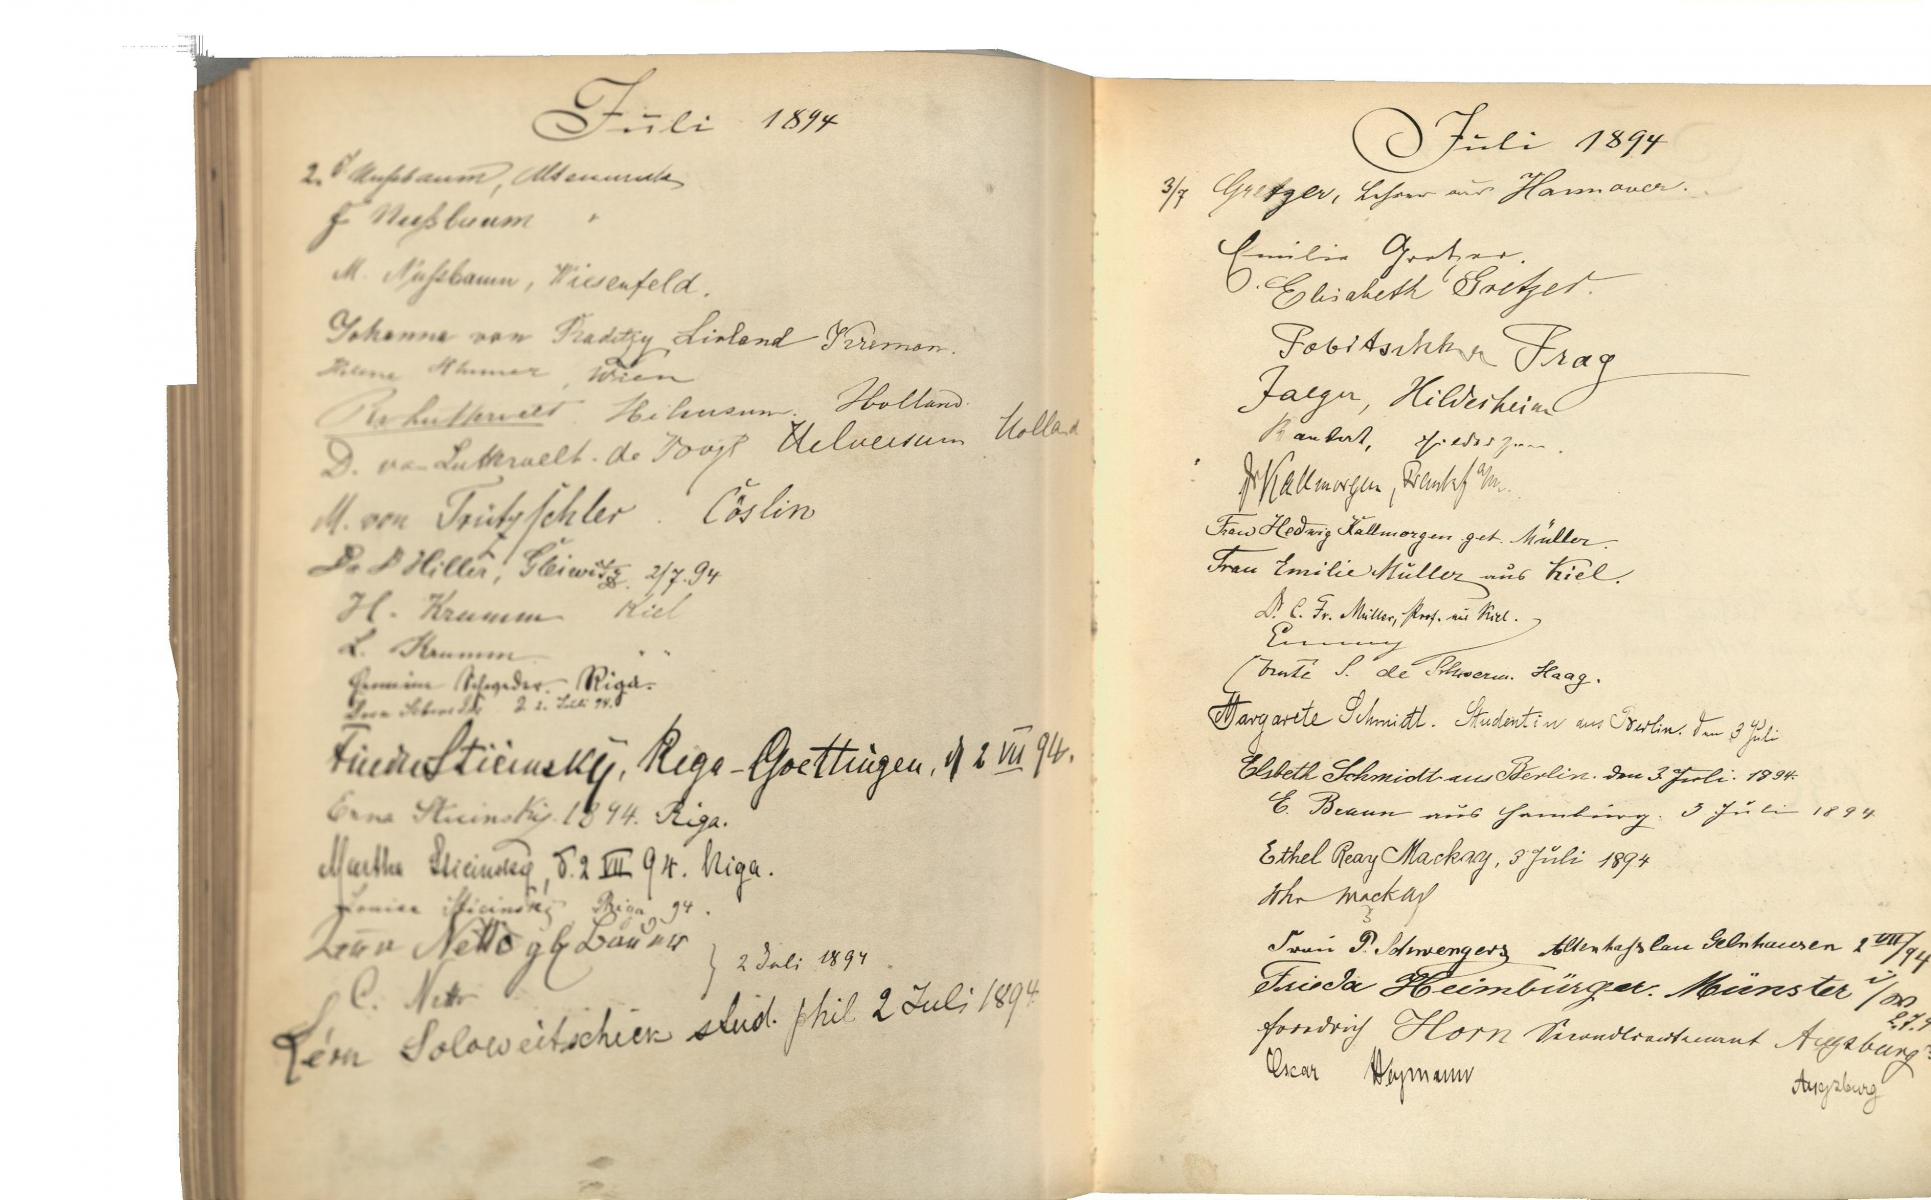 Juli 1894
2. Nußbaum, Altenmuhr
J Nußbaum "
M. Nußbaum, Wiesenfeld.
Johanna von Livland Kremon.
Helene Wien
Hilversum. Holland.
D. van Lutterveld - de Voogt Hilversum Holland
M. von Trützschler. Cöslin
Dr P Hiller, Gleiwitz 2/7.94
H. Krumm Kiel
L. Krumm " "
Hermine Schweder. Riga.
2. Juli 94.
Frieda Sticinsky, Riga-Goettingen, d 2 VII 94.
Erna Sticinsky. 1894. Riga.
Martha Sticinsky, d. 2 VII 94. Riga.
Louise Sticinsky Riga 94.
Netto
C. Netto } 2 Juli 1894
Léon Soloweitschick stud. phil 2 Juli 1894
Juli 1894
3/7 Gretzer, Lehrer aus Hannover.
Emilie Gretzer.
Elisabeth Gretzer.
Pobitschka Prag
Jaeger, Hildesheim
Hildesheim.
Dr Kallmorgen, Frankf a/m.
Frau Hedwig Kallmorgen geb. Müller.
Frau Emilie Müller aus Kiel.
Dr. C. Fr. Müller, Prof. aus Kiel.
Comte S. de Haag.
Margarete Schmidt. Studentin aus Berlin. den 3 Juli
Elsbeth Schmidt aus Berlin. den 3. Juli. 1894.
E. Braun aus Hamburg. 3 Juli 1894
Ethel Reay Mackay, 3 Juli 1894
Mackay
Frau P. Schwengers Altenhaßlau Gelnhausen 2 VII/94
Frieda Heimbürger. Münster i/W
2.7.9
Friedrich Horn Secondlieutenant Augsburg
Oscar Heymann Augsburg